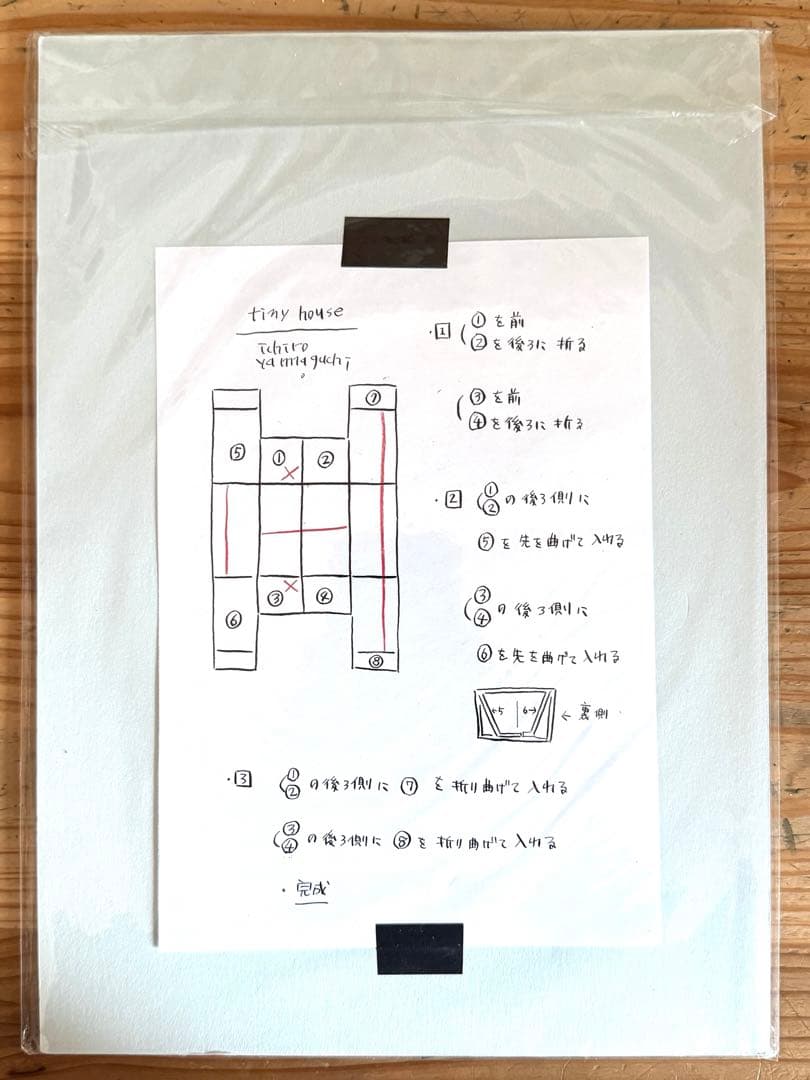 tiny house
ichiro
yamaguchi
⑦
⑤ ① ②
③ ④
⑥
⑧
・1 ( ①を前
②を後ろに折る
( ③を前
④を後ろに折る
・2 ( ①
② の後ろ側に
⑤を先を曲げて入れる
( ③
④ の後ろ側に
⑥を先を曲げて入れる
←5 6→ ← 裏側
・3 ( ①
② の後ろ側に ⑦ を折り曲げて入れる
( ③
④ の後ろ側に ⑧ を折り曲げて入れる
・完成